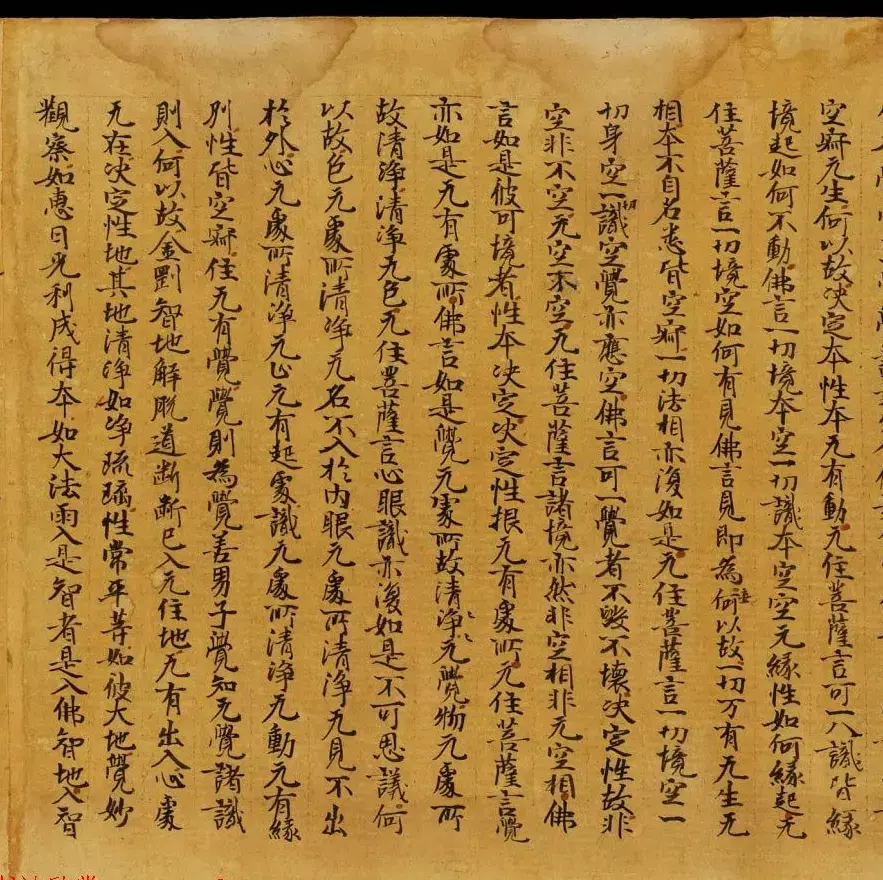 空寂无生何以故決定本性本无有動无住菩薩言可一八識皆緣
境起如何不動佛言一切境本空一切識本空空无緣性如何緣起无
住菩薩言一切境空如何有見佛言見即為妄何以故一切万有无生无
相本不自名悉皆空寂一切法相亦復如是无住菩薩言一切境空一
切身空一切識空覺亦應空佛言可一覺者不毀不壞決定性故非
空非不空无空不空无住菩薩言諸境亦然非空相非无空相佛
言如是彼可境者性本決定決定性根无有處所无住菩薩言覺
亦如是无有處所佛言如是覺无處所故清淨清淨无覺物无處所
故清淨清淨无色无住菩薩言心眼識亦復如是不可思議何
以故色无處所清淨无名不入於內眼无處所清淨无見不出
於外心无處所清淨无止无有起處識无處所清淨无動无有緣
別性皆空寂性无有覺覺則為覺善男子覺知无覺諸識
則入何以故金剛智地解脫道斷斷已入无住地无有出入心處
无在決定性地其地清淨如淨琉璃性常平等如彼大地覺妙
觀察如惠日光利成得本如大法雨入是智者是入佛智地入智